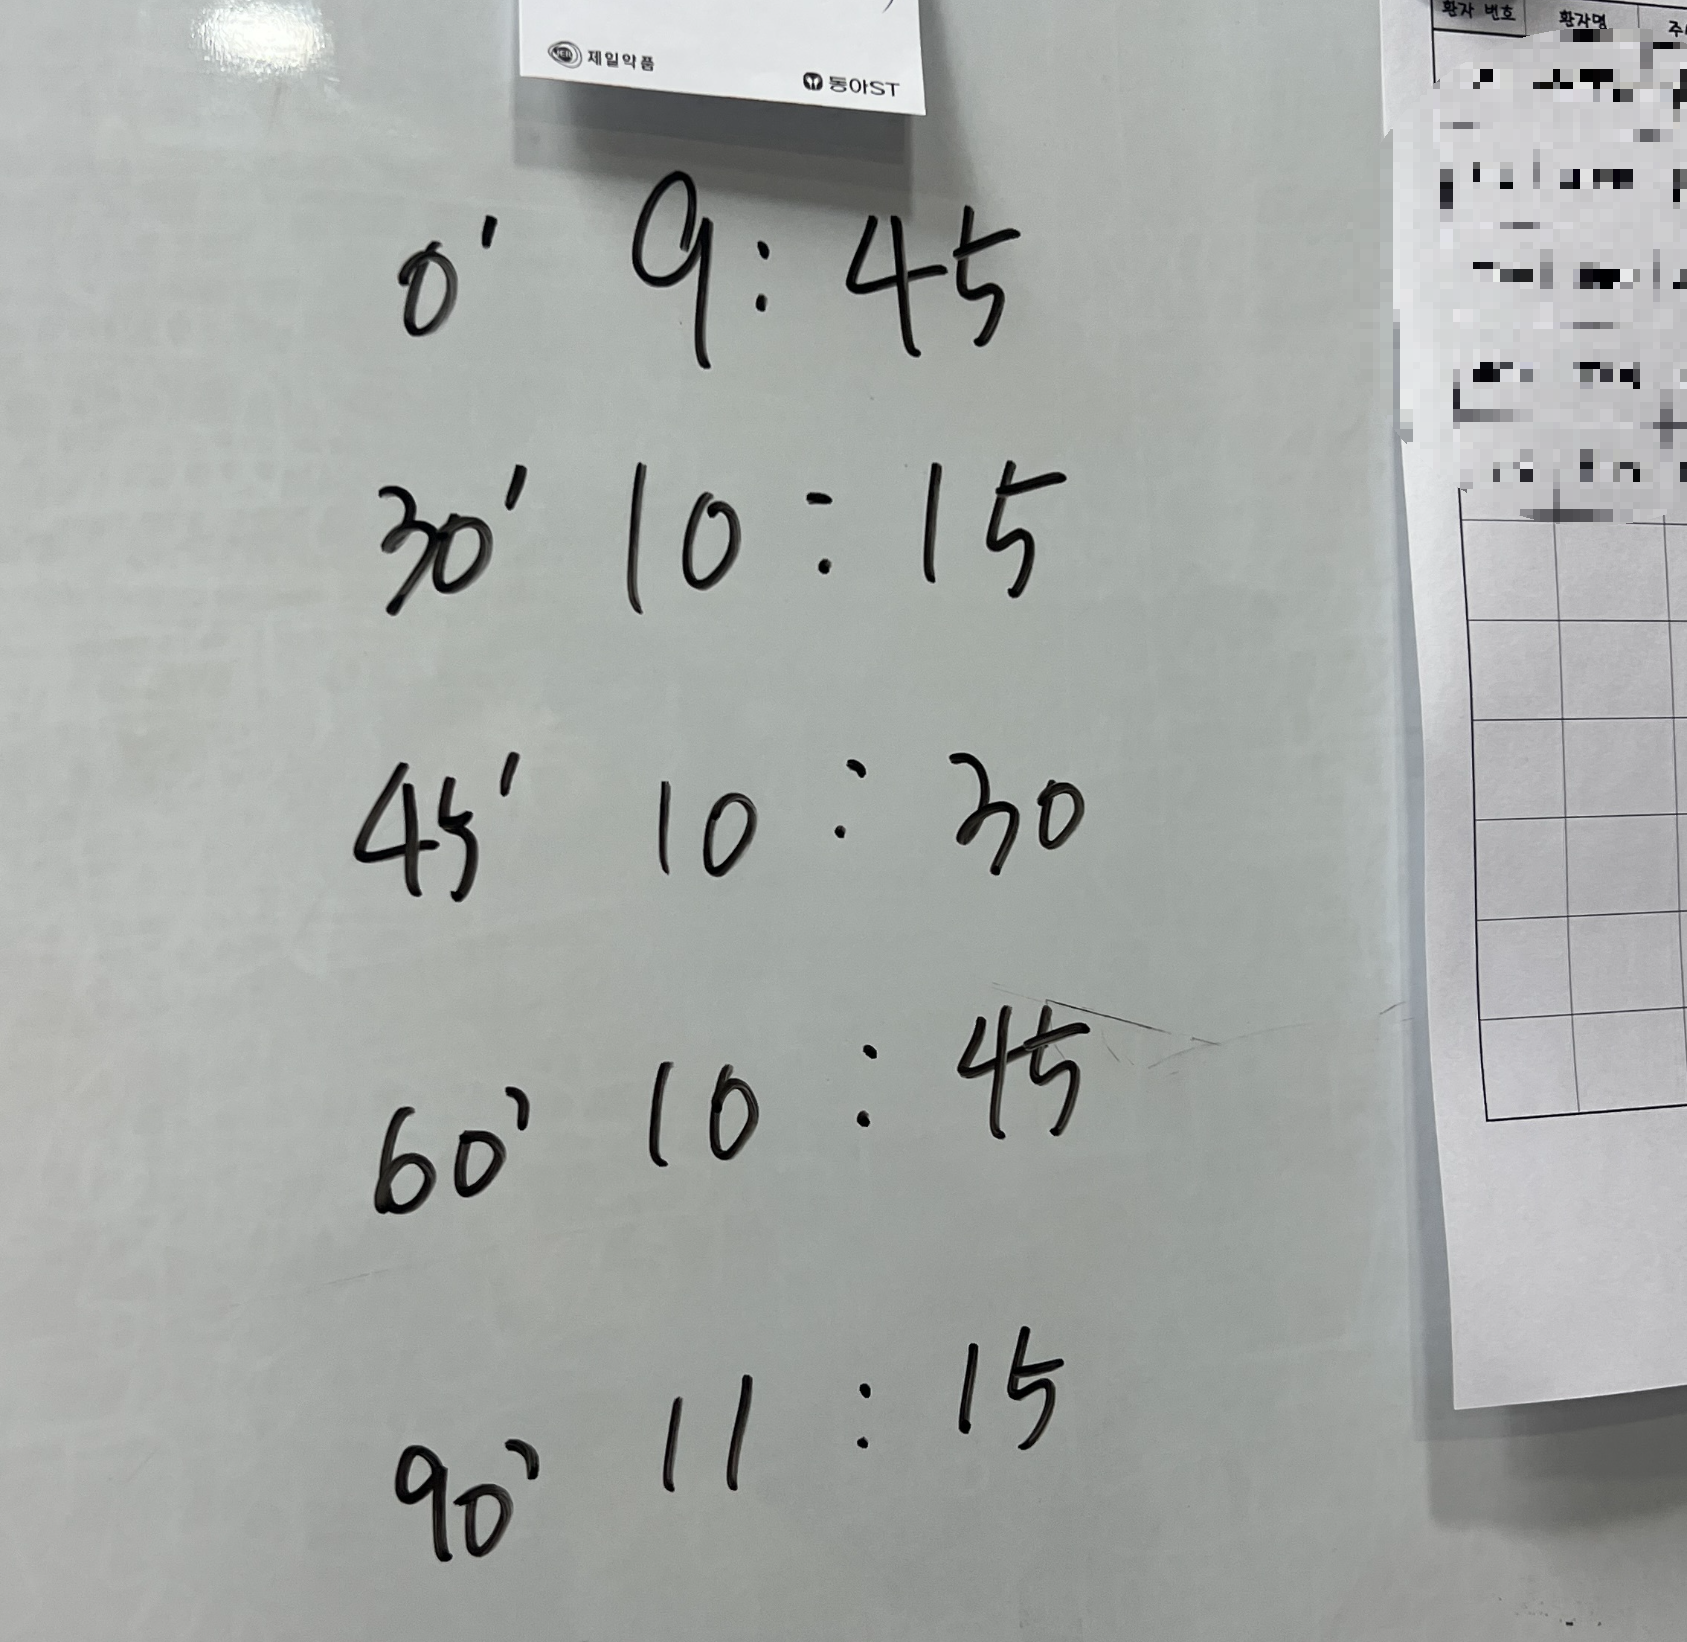 제일약품
동아ST
환자 번호 환자명
0' 9:45
30' 10:15
45' 10:30
60' 10:45
90' 11:15